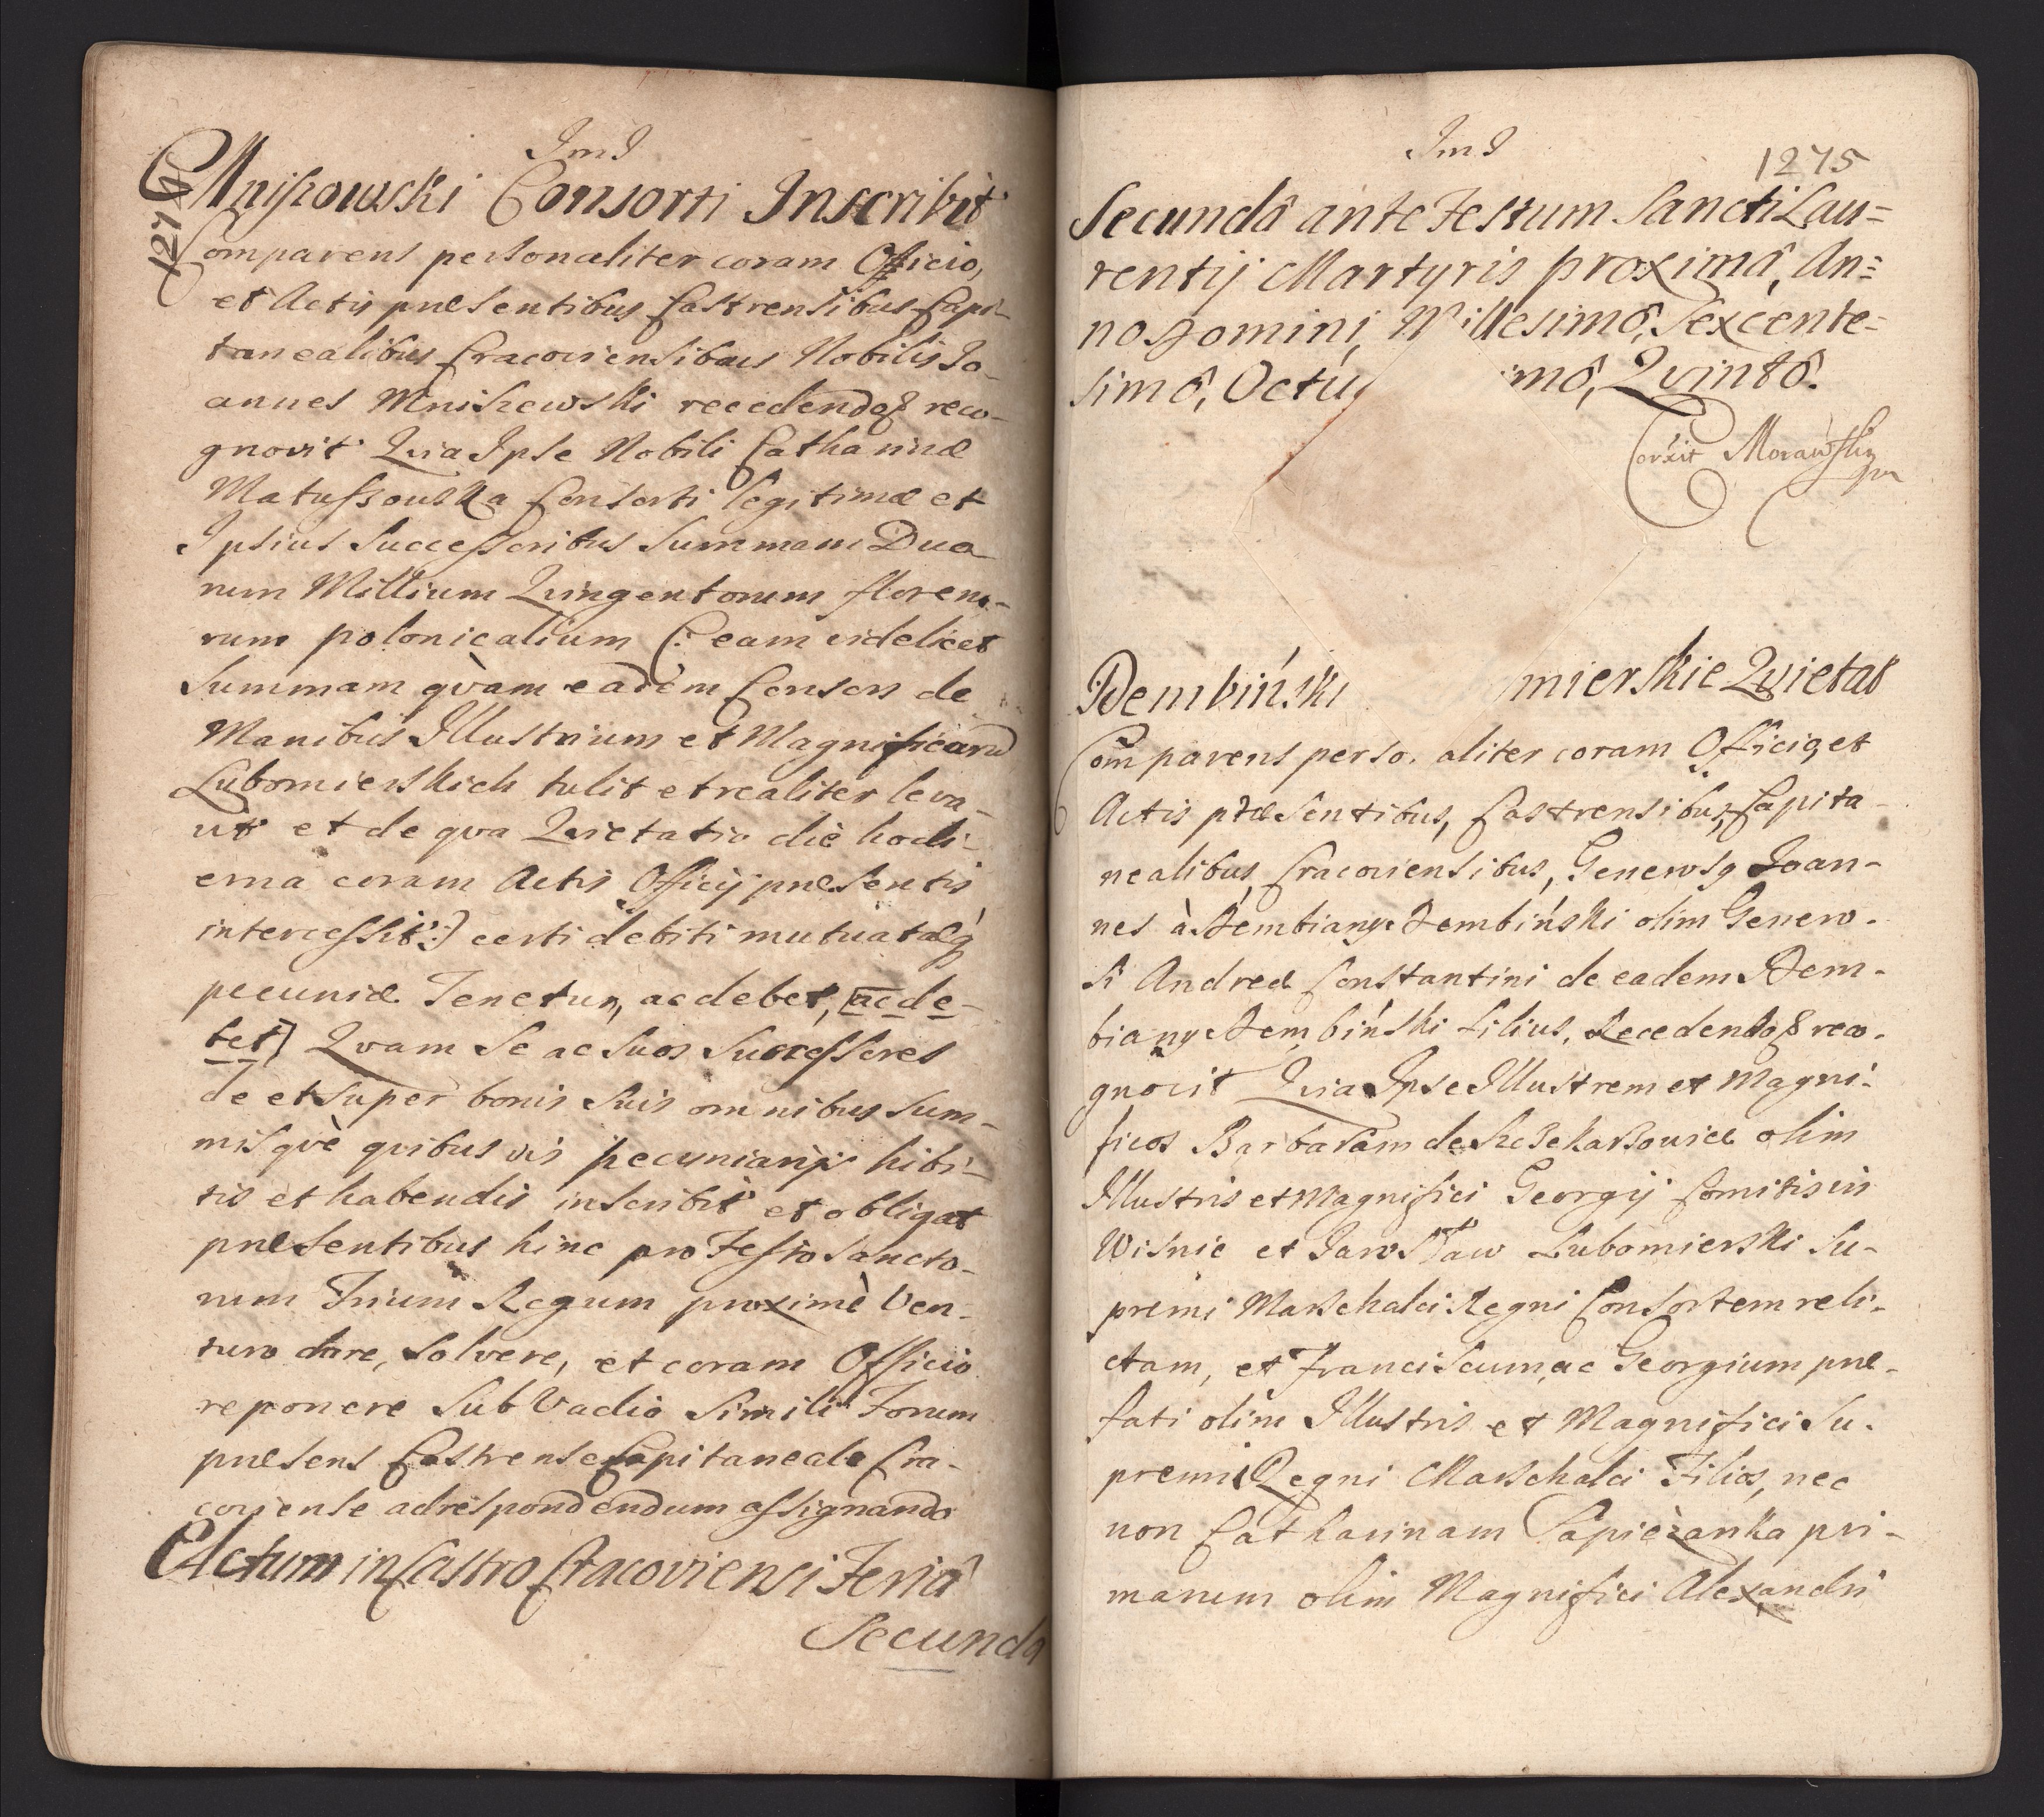 ImI
1274
Mniszowski Consorti Inscribit
Comparens personaliter coram Officio,
et Actis præsentibus Castrensibus Capi-
tanealibus Cracoviensibus Nobilis Jo-
annes Mniszewski recedendoq reco-
gnovit Qvia Ipse Nobili Catharinæ
Matussouska Consorti legitimæ et
Ipsius Successoribus Summam Dua-
rum Millium Qvingentorum floreno-
rum polonicalium (: eam videlicet
Summam qvàm eadem Consors de
Manibus Illustrium et Magnificorum
Lubomierskich tulit et realiter leva-
vit et de qva Qvietatio die hodi-
erna coram Actis Officij præsentis
intercessit :) certi debiti mutuatæq
pecuniæ Tenetur, ac debet, [ac de-
bet] Qvam Se ac Suos Successores
de et super bonis Suis omnibus Sum-
misqvè qvibus vis pecuniarijs hibi-
tis et habendis inscribit et obligat
præsentibus hinc pro Festo Sancto-
rum Trium Regum proximè Ven-
turo dare, Solvere, et coram Officio
reponere Sub Vadio Simili Forum
præsens Castrense Capitaneale Cra-
coviense ad respondendum assignando
Actum in Castro Cracoviensi Feriâ
Secunda
ImI
1275
Secundâ ante Festum Sancti Lau=
rentij Martyris proximâ, An=
no Domini, Millesimô, Sexcente=
simô, Octu mô, Qvintô.
Corxit Morawski
Dembiński mierskie Qvietat
Comparens perso. aliter coram Officio, et
Actis præsentibus, Castrensibus, Capita-
nealibus, Cracoviensibus, Generosq Joan-
nes à Dembiany Dembiński olim Genero-
si Andreæ Constantini de eadem Dem-
biany Dembiński Filius, Recedendoq reco-
gnovit Qvia Ipse Illustrem et Magni-
ficos Barbaram de olim
Illustris et Magnifici Georgij Comitis in
Wisnic et Jarosław Lubomierski Su-
premi Marschalci Regni Consortem reli-
ctam, et Franciscum, ac Georgium præ-
fati olim Illustris et Magnifici Su-
premi Regni Marschalci Filios, nec
non Catharinam Sapièzanka pri-
marum olim Magnifici Alexandri